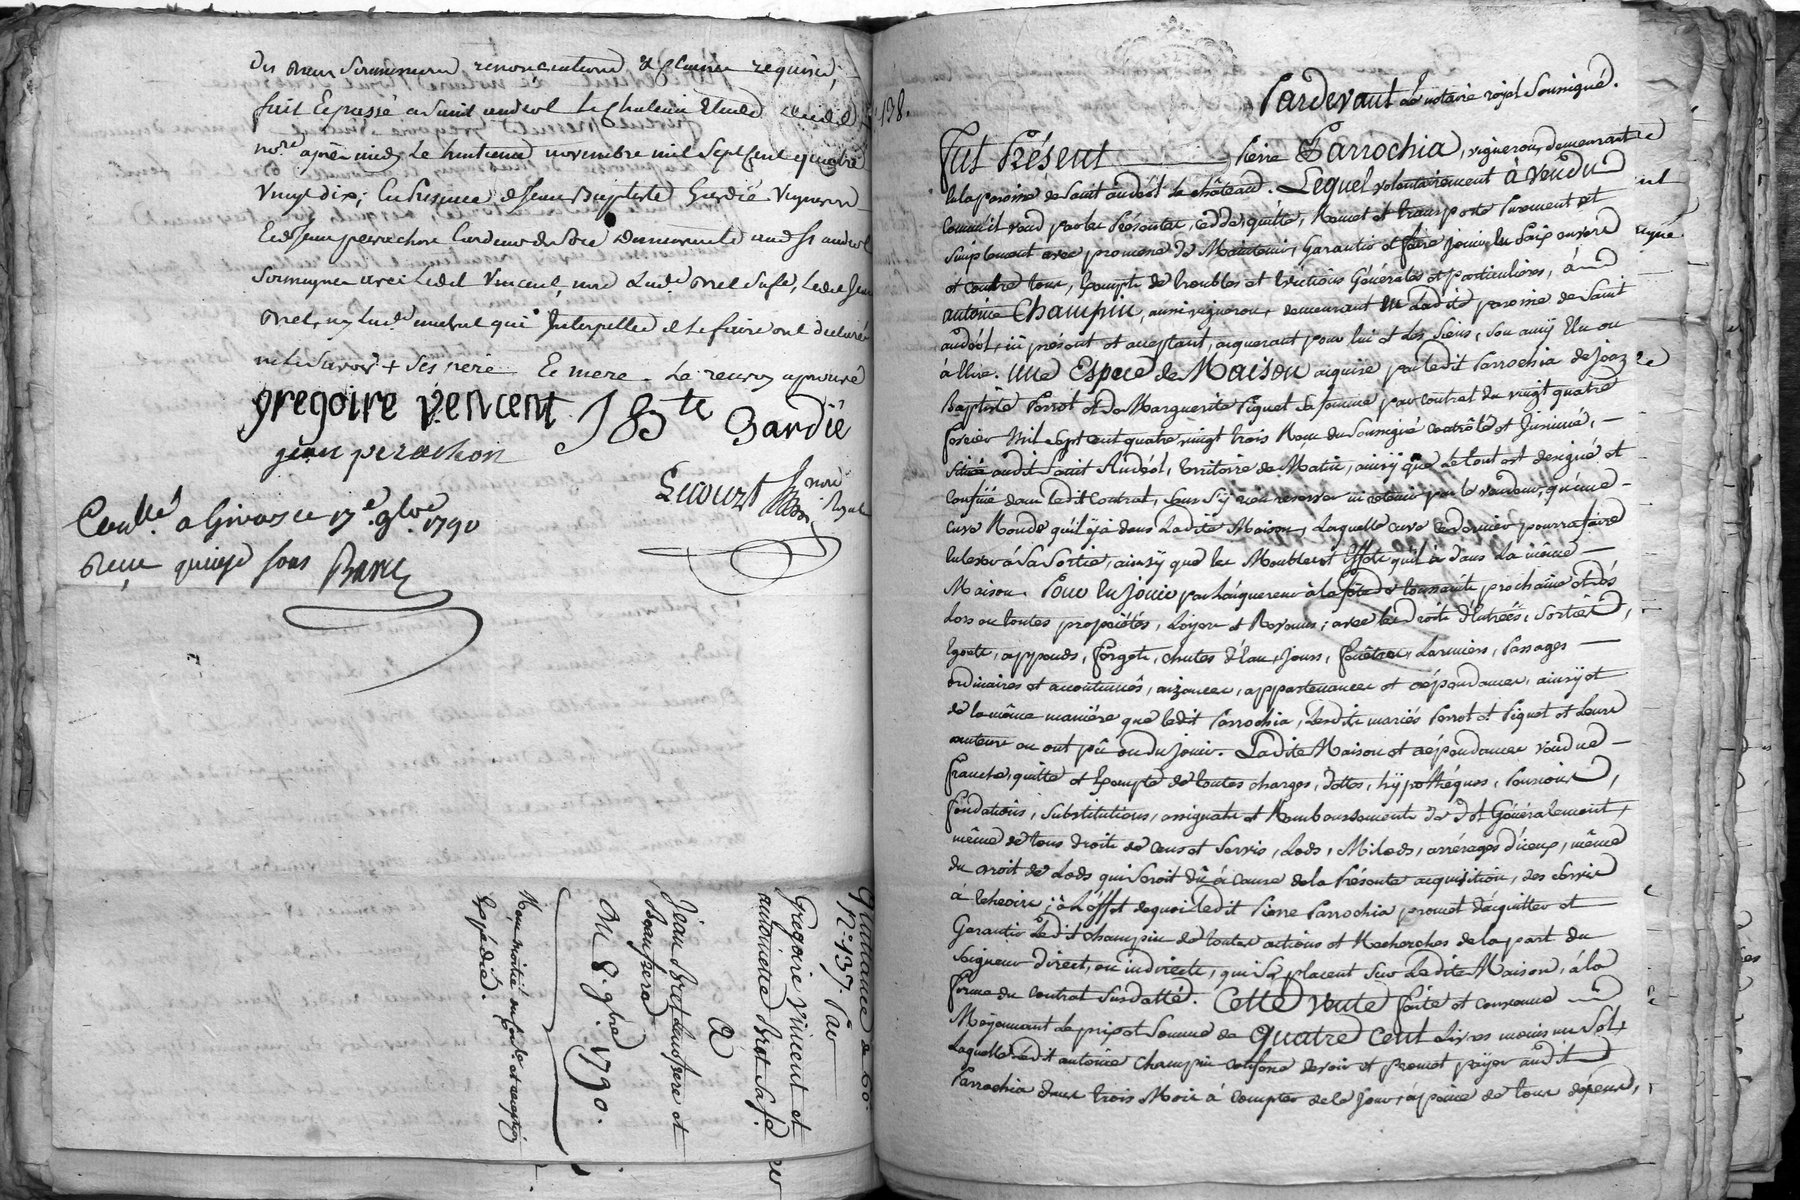 renonciations & Clause requise,
fait Et passé a Saint andeol Le Chateau Etude dud.
no.re après midy Le huitieme novembre mil Sept Cent quatre
Vingt dix; En presence de Jean Baptiste Gardié Vigneron
Et de Jean perachon demeurants aud. St andeol
Soussignes avec Ledit Vincent, non Lad. Bret Sa fe, Ledit Jean
Bret, ny Lad. qui Interpellés de Le faire ont declaré
ne Le Savoir + Ses pere Et mere. Le renvoy aprouvé
gregoire vencent J Bte Gardié
jean perachon
not. Royal
Contlé a Givors Le 17e 9bre 1790
Reçu quinze sous
Quittance de 60#
N.º 137. Par
Gregoire Vincent et
antoinette Bret Sa fe.
A
Jean Bret Leurs frere et
Beau frere
Du 8. 9bre 1790.
Reçu moitié du Con.le et
Expédié.
138.
Pardevant le notaire royal Soussigné.
Fut Présent Pierre Parrochia, vigneron, demeurant en
la paroisse de Saint andéol le château. Lequel volontairement à vendu
Comme il vend par les Présentes, cedde, quitte, Remet et transporte Purement et
Simplement avec promesse de Maintenir, Garantir et faire jouir en Paix envers
et contre tous, Exempte de troubles et Evictions Générales et particulières, à
antoine Champin, aussi vigneron, demeurant En Ladite paroisse de Saint
andéol, ici présent et acceptant, acquerant pour lui et Les Siens, Son amy Elu ou
à Elire. Une Espece de Maison acquise par ledit Parrochia de Jean
Baptiste Perrot et de Marguerite Piguet Sa femme par contrat du vingt quatre
fevrier Mil Sept cent quatre vingt trois Reçu du Soussigné controlé et Jnsinué,
Située audit Saint Andéol, territoire de Matin, ainsy que Le tout est designé et
Confiné dans ledit Contrat, Sans s'y rien reserver ni retenir par le vendeur, qu'une
cuve Ronde qu'il y à dans Ladite Maison, Laquelle cuve ce dernier pourra faire
Enlever à Sa Sortie, ainsy que les Meubles et Effets qu'il à dans La même
Maison. Pour En jouir par L'acquereur à la fête de toussaints prochaine et dès
Lors en toutes propriétés, Loyers et Revenus; avec les droits d'Entrées, Sorties,
Egouts, appends, forgets, chutes d'Eau, Jours, fenêtres, Larmiers, Passages
ordinaires et accoutumés, aizances, appartenances et dépendances, ainsy et
de la même manière que ledit Parrochia, Lesdits mariés Perrot et Piguet et Leurs
auteurs en ont pû ou du jouir. Ladite Maison et dépendances vendue
franche, quitte et Exempte de toutes charges, dettes, hypothéques, Pensions,
fondations, Substitutions, assignats et Remboursements de dot Généralement,
même de tous droits de Cens et Servis, Lods, Milods, arrérages d'iceux, même
du droit de Lods qui Seroit dû à Cause de la Présente acquisition, des Servis
à L'éffet de quoi ledit Pierre Parrochia promet d'acquitter et
Garantir Ledit Champin de toutes actions et Recherches de la part du
Seigneur direct, ou indirecte, qui Se placent Sur Ladite Maison, à la
forme du contrat Susdatté. Cette vente faite et convenue
Moyennant Le prix et Somme de quatre cent Livres moins un Sol,
Laquelle Ledit antoine Champin confesse devoir et promet payer audit
Parrochia dans trois Mois à Compter de ce Jour, à peine de tous dépens,